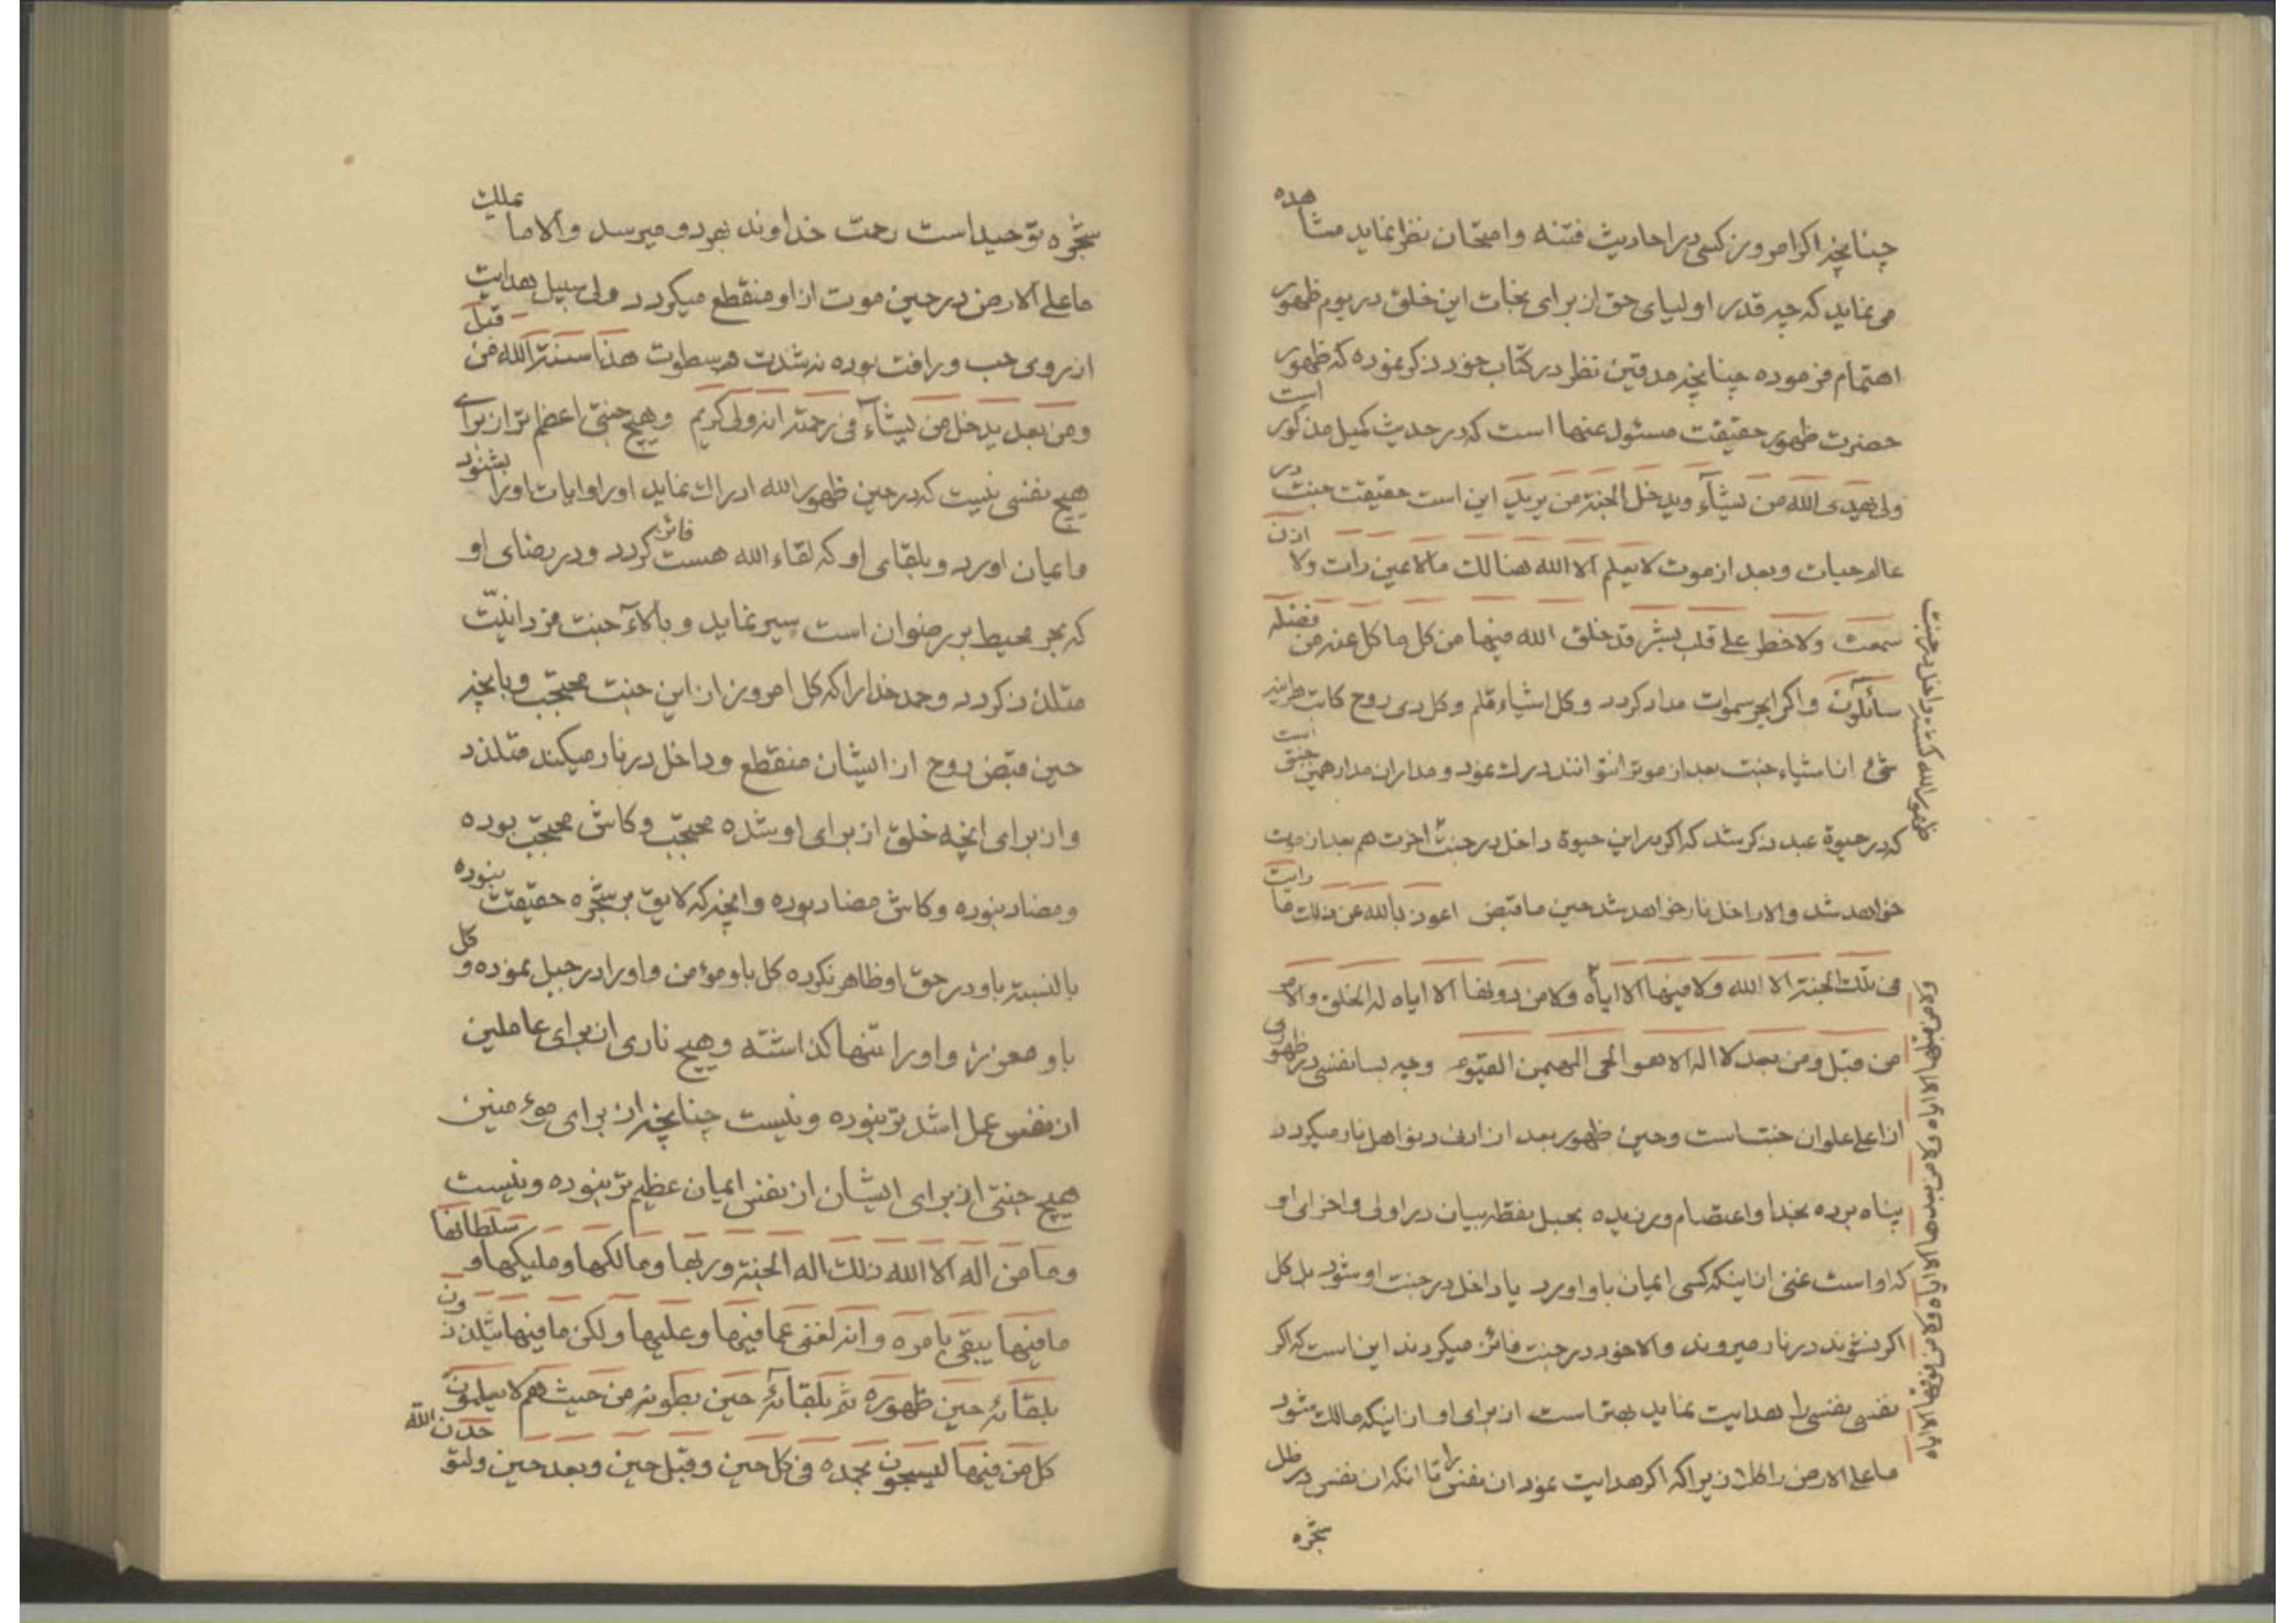 چنانچه اکر امروز کسی در احادیث فتنه و امتحان نظر نماید مشاهده
می نماید که چه قدر اولیای حق از برای نجات این خلق در یوم ظهور
اهتمام فرموده چنانچه مدققین نظر در کتاب خود ذکر نموده که ظهور
حضرت ظهور حقیقت مسئول عنها است که در حدیث کمیل مذکور است
ولی یهدی الله من یشآء و یدخل الجنة من یرید این است حقیقت جنت در
عالم حیات و بعد از موت لا یعلم الا الله هنالک ما لا عین رات ولا اذن
سمعت ولا خطر علی قلب بشر قد خلق الله فیها من کل ما کل عنه من فضله
سائلون و اکر ابحر سموات مداد کردد و کل اشیاء قلم و کل ذی روح کاتب هر اینه
شیء از اشیاء جنت بعد از موت را نتوانند درک نمود و مدار ان مدار همین جنتی است
که در حیوة عبد ذکر شد که اکر در این حیوة داخل در جنت اخرت هم بعد از موت
ظهور الله کشته داخل در جنت
خواهد شد والا داخل نار خواهد شد حین ما قبض اعوذ بالله عن ذلک ما رایت
فی تلک الجنة الا الله ولا فیها الا ایاه ولا من دونها الا ایاه له الخلق والامر
ولا من قبلها الا ایاه ولا من بعدها الا ایاه ولا من فوقها الا ایاه
من قبل ومن بعد لا اله الا هو الحی المهیمن القیوم و چه بسا نفسی در ظهوری
از اعلی علو ان جنت است و حین ظهور بعد از ادنی دنو اهل نار میکردد
پناه برده بخدا و اعتصام ورزیده بحبل نقطه بیان در اولی و اخرای او
که او است غنی از اینکه کسی ایمان باو اورد یا داخل در جنت او شود بل کل
اکر نشوند در نار میروند والا خود در جنت فائز میکردند این است که اکر
نفسی نفسی را هدایت نماید بهتر است از برای او از اینکه مالک شود
ما علی الارض را کلا زیرا که اکر هدایت نمود ان نفس را تا انکه ان نفس در ظل
شجره
شجره توحید است رحمت خداوند بهر دو میرسد والا ما یملک
ما علی الارض در حین موت از او منقطع میکردد ولی سبیل هدایت
از روی حب و رافت بوده نه شدت و سطوت هذا سنة الله من قبل
ومن بعد یدخل من یشآء فی رحمته انه ولی کریم و هیچ جنتی اعظم تر از برای
هیچ نفسی نیست که در حین ظهور الله ادراک نماید او را و ایات او را بشنود
و ایمان اورد و بلقای او که لقاء الله هست فائز کردد و در رضای او
که بحر محیط بر رضوان است سیر نماید و بالآء جنت فردانیّت
متلذذ کردد و حمد خدا را که کل امروز از این جنت محتجب و بانچه
حین قبض روح از ایشان منقطع و داخل در نار میکند متلذذ
و از برای انچه خلق از برای او شده محتجب و کاش محتجب بوده
و مضاد نبوده و کاش مضاد بوده و انچه که لایق بر شجره حقیقت نبوده
بالنسبة باو در حق او ظاهر نکرده کل باو موءمن و او را در جبل نموده و کل
باو معزز و او را تنها کذاشته و هیچ ناری از برای عاملین
از نفس عمل اشد تر نبوده و نیست چنانچه از برای موءمنین
هیچ جنتی از برای ایشان از نفس ایمان عظیم تر نبوده و نیست
وما من اله الا الله ذلک اله الجنة و ربها و مالکها و ملیکها و سلطانها
ما فیها یبقی بامره و انه لغنی عما فیها و علیها ولکن ما فیها یتلذذون
بلقائه حین ظهوره ثم بلقائه حین بطونه من حیث هم لا یعلمون
کل من فیها لیسبحون بحمده فی کل حین و قبل حین و بعد حین